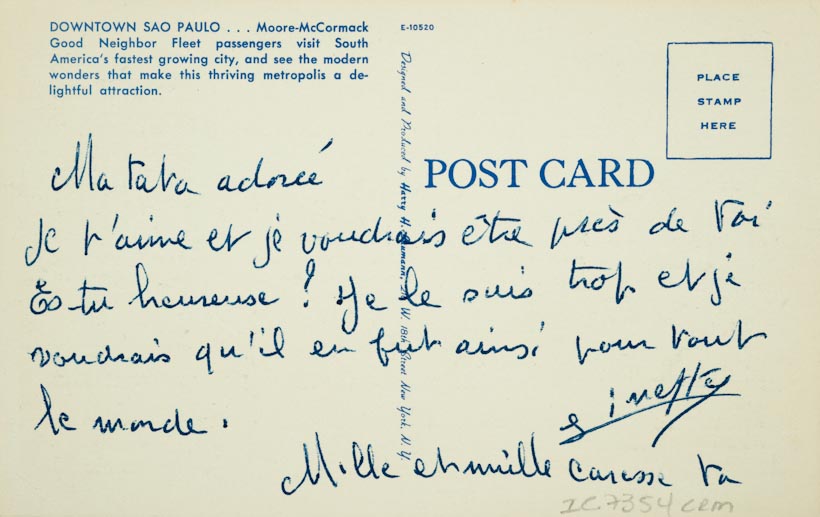 DOWNTOWN SAO PAULO . . . Moore-McCormack
Good Neighbor Fleet passengers visit South
America's fastest growing city, and see the modern
wonders that make this thriving metropolis a de-
lightful attraction.
E-10520
Designed and Produced by Harry H. Baumann, W. 18th Street New York, N. Y.
PLACE
STAMP
HERE
POST CARD
Ma tata adorée
Je t'aime et je voudrais être près de toi
Es tu heureuse ? Je le suis trop et je
voudrais qu'il en fut ainsi pour tout
le monde.
Mille et mille caresse ta
ginette
IC7354 crm